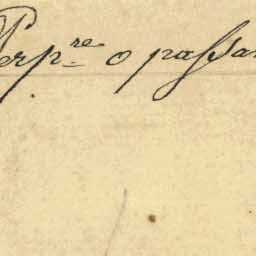 Perp.re o passa